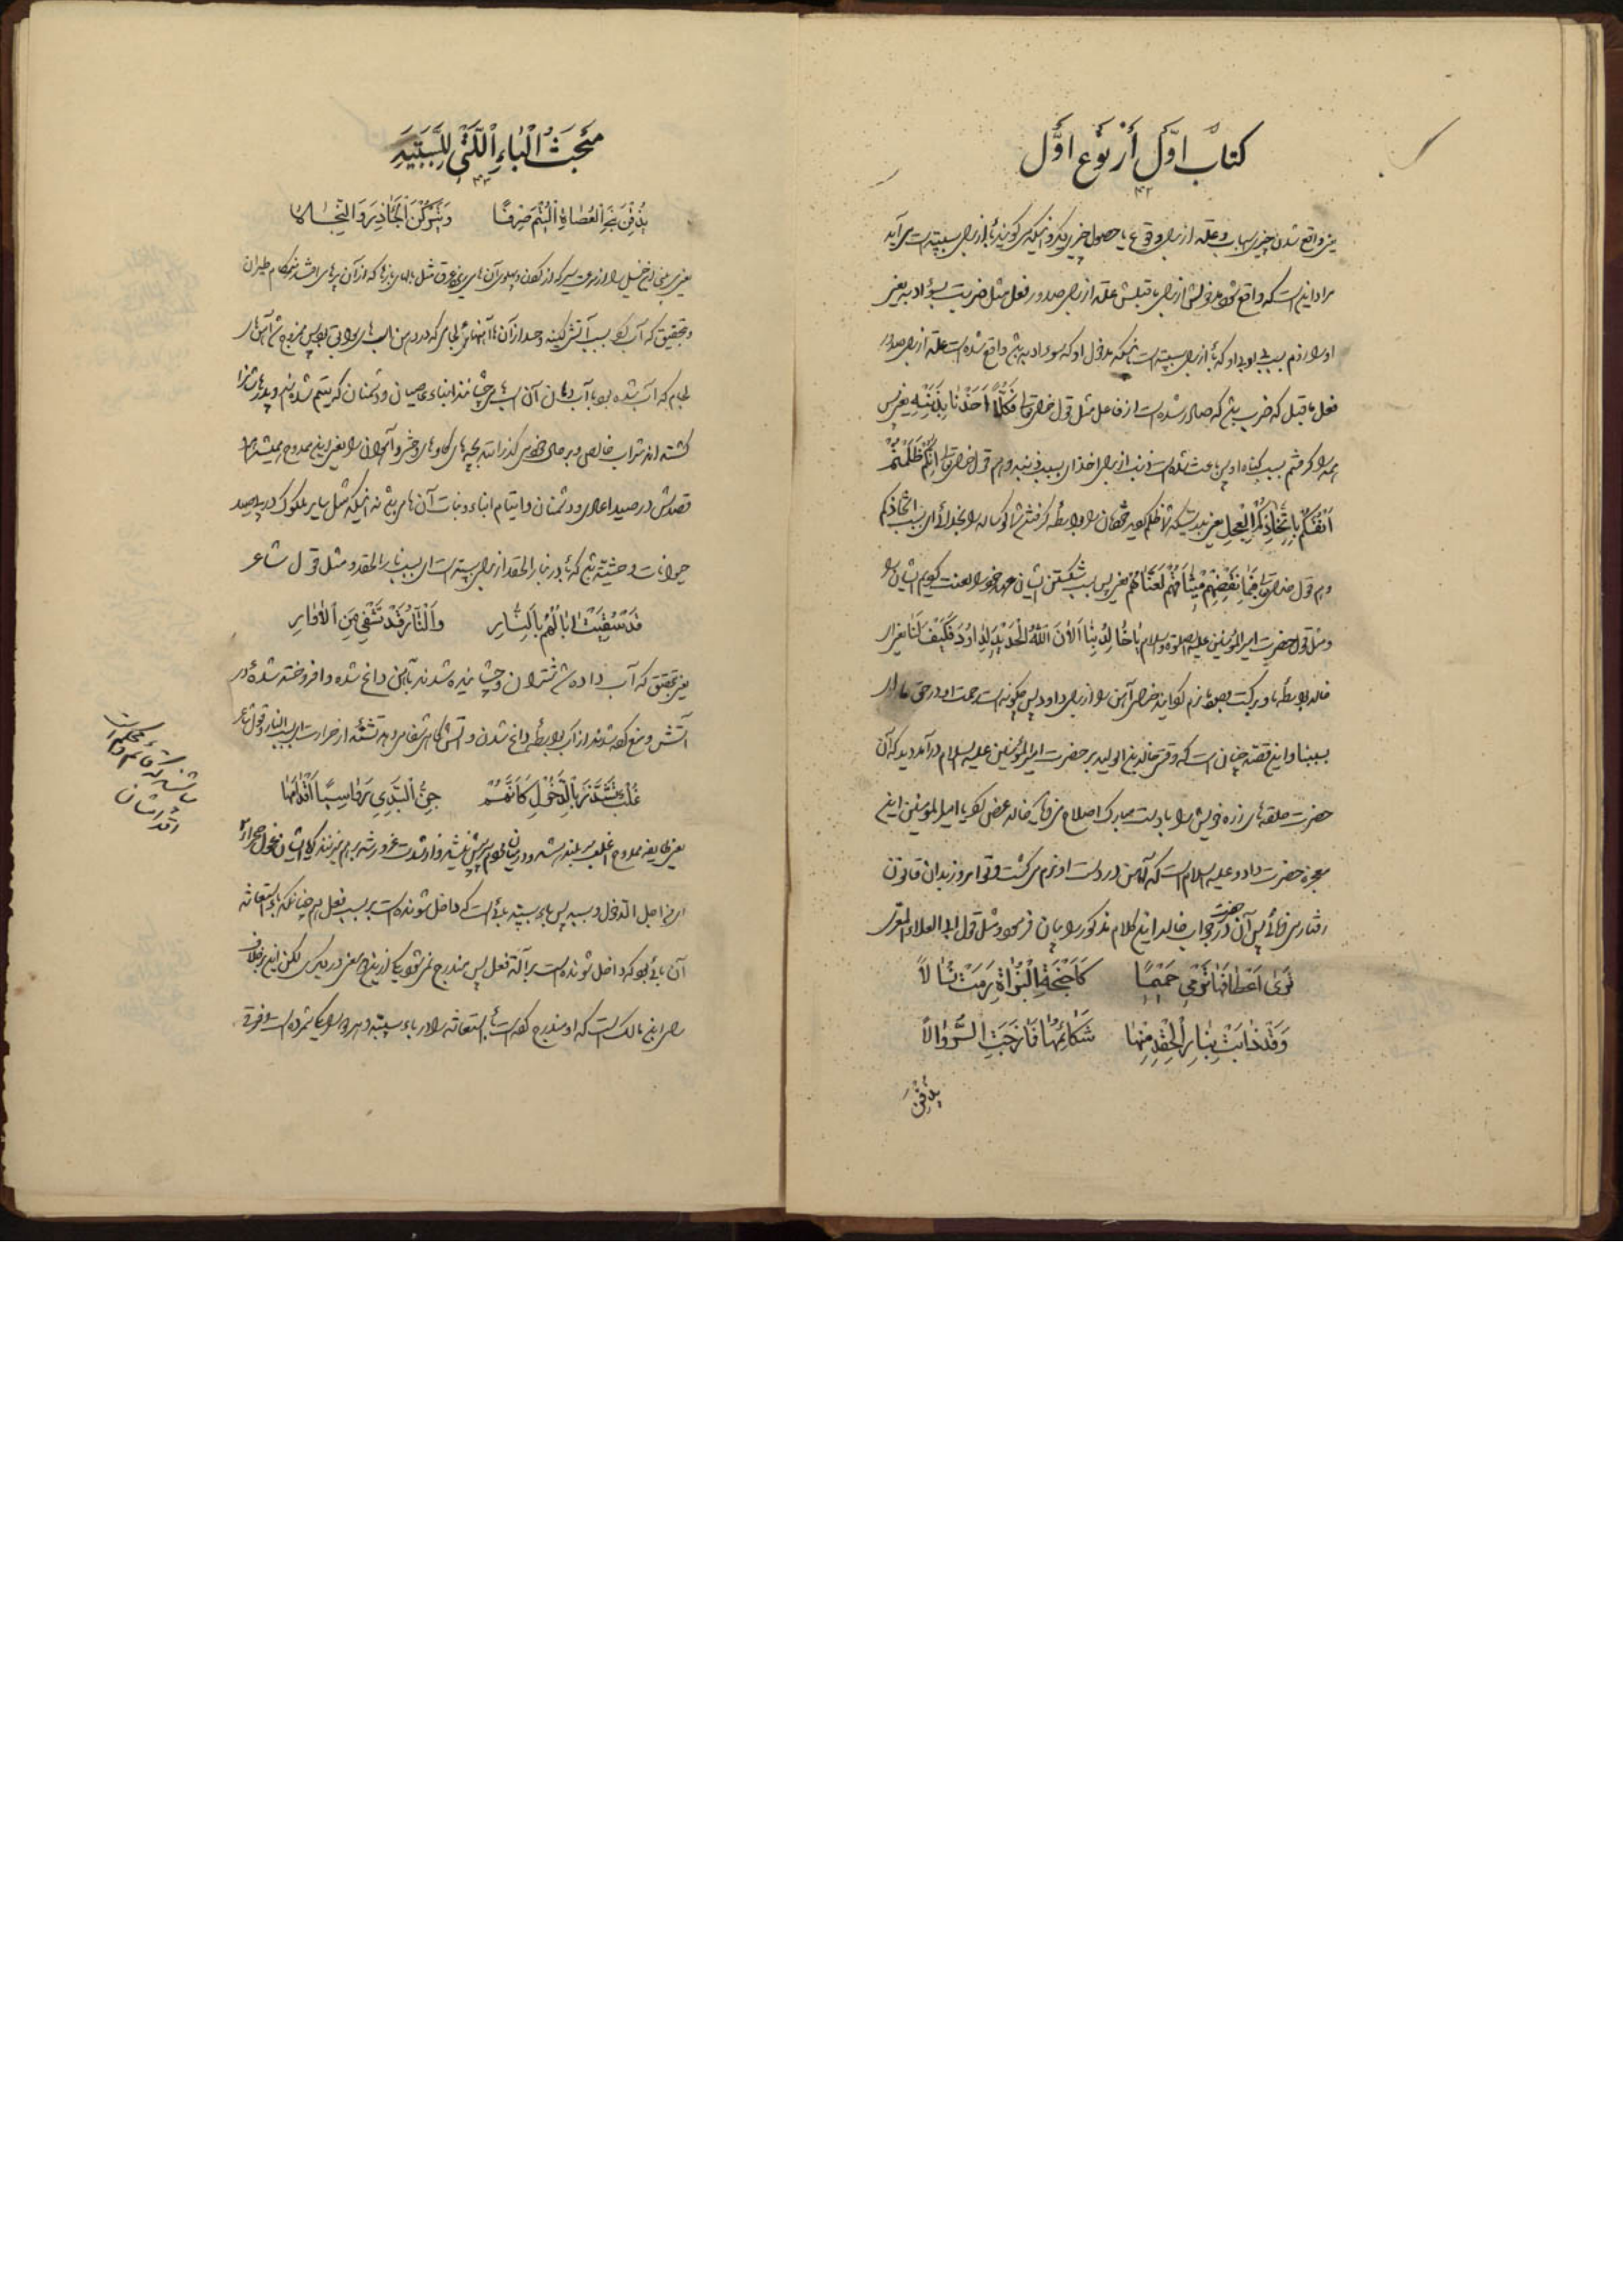 کتاب اوّل از نوع اوّل
۴۲
یعنی واقع شدن چیزی سبب و علّه از برای وقوع یا حصول چیزی دیگر و اینکه می گویند باء از برای سببیّته است می آید
مراد این است که واقع شود مدخولش از برای ماقبلش علّه از برای صدور فعل مثل ضربت بسوء ادبه یعنی
او را زدم بسبب بی ادبی او که باء از برای سببیّته است اینکه مدخول او که سوء ادبه باشد واقع شده است علّة از برای صدور
فعل ماقبل که ضرب باشد که صادر شده است از فاعل مثل قول خدایتعالی فَكُلًّا اَخَذْنَا بِذَنْبِهِ یعنی پس
همه را گرفتم بسبب گناه او پس باعث شده است ذنب از برای اخذ ای بسبب ذنبه و هم قول خدایتعالی اِنَّكُمْ ظَلَمْتُمْ
اَنْفُسَكُمْ بِاتِّخَاذِكُمُ الْعِجْلَ یعنی بدرستیکه شما ظلم کردید خودتان را بواسطه گرفتن شما گوساله را بخدائی ای بسبب اتّخاذکم
و هم قول خدایتعالی فَبِمَا نَقْضِهِمْ مِيثَاقَهُمْ لَعَنَّاهُمْ یعنی پس بسبب شکستن ایشان عهد خود را لعنت کردیم ایشان را
و مثل قول حضرت امیر المؤمنین علیه الصلوة والسلام یَا خَالِدُ بِنَا اَلَانَ اللّٰهُ الْحَدِیْدَ لِدَاوُدَ فَکَیْفَ لَنَا یعنی ای
خالد بواسطه ما و برکت ما نرم گردانید خدا آهن را از برای داود پس چگونه است رحمت او در حق ما ای
بسببنا و این قصّه چنان است که وقتی خالد بن الولید بر حضرت امیر المؤمنین علیه السلام درآمد دید که آن
حضرت حلقه های زره خویش را با دست مبارک اصلاح می فرماید خالد عرض کرد یا امیر المؤمنین این
معجزه حضرت داود علیه السلام است که آهن در دست او نرم می گشت و تو امروز بدان قانون
رفتار می فرمائی پس آن حضرت در جواب خالد این کلام مذکور را بیان فرمود و مثل قول ابی العلاء المعرّی
تَرَى اَعْطَافَهَا تَرْمِي حَمِيْمًا كَاَجْنِحَةِ الْبُزَاةِ رَمَتْ نُسَالًا
وَقَدْ ذَابَتْ بِنَارِ الْحِقْدِ مِنْهَا شَكَائِمُهَا فَمَازَجَتِ الرُّوَالًا
يُذِقْنَ
مَبْحَثُ الْبَاءِ الَّتِي لِلسَّبَبِيَّةِ
۴۳
يُذِقْنَ بَنِي الْعُصَاةِ الْيُتْمَ صِرْفًا وَيَتْرُكْنَ الْجَآذِرَ وَالسِّخَالَا
یعنی می بینی این خیل را از سرعت سیر که از کفل و پهلوی آن ها می ریزد عرق مثل بالهای بازها که از آن پرها می افشد هنگام طیران
و بتحقیق که آب گردید بسبب آتش کینه و حسد از آن ها آهنهای لجامی که در دهن اسب ها
لجام که آب شده بود با آب دهان آن اسب ها می چشانند ابناء عاصیان و دشمنان که یتیم شده اند و پدرهاشان
کشته اند شراب خالص و بر حال خود می گذرانند بچه های گاوهای وحشی و آهوان را یعنی این ممدوح همیشه
قصدش در صید اعادی و دشمنان و ایتام ابناء و بنات آن ها می باشد نه اینکه مثل سایر ملوک در پی صید
حیوانات وحشیّه باشد که باء در بنار الحقد از برای سببیّته است ای بسبب نار الحقد و مثل قول شاعر
قَدْ سُقِيَتْ اٰبَالُهُمْ بِالنَّارِ وَالنَّارُ قَدْ تَشْفِي مِنَ الْاُوَارِ
یعنی بتحقیق که آب داده شد شتران و چشانیده شدند بآهن داغ شده و افروخته شده در
آتش و منع کرده شدند از آب بواسطه داغ شدن و آتش گاهی شفا می دهد تشنه از حرارت ای بسبب النار و قول شاعر
غُلْبٌ تَشَذَّرُ بِالذُّحُولِ كَاَنَّهُمْ جِنُّ الْبَدِيِّ رَوَاسِيًا اَقْدَامُهَا
یعنی طایفه ممدوح اغلب و بلند
ای من اجل الذحول و بسببه پس باء سببیّه بائی است که داخل شونده است بر سبب فعل هم چنانکه باء استعانه
آن بائی بود که داخل شونده است بر آله فعل پس مندرج نمی شود یکی از این دو معنی در دیگری لکن این بر خلاف
رای ابن مالک است که او مندرج کرده است باء استعانه را در باء سببیّته و هر دو را یکی شمرده است و فرق
باشد که قائم و محکم است
اقدامشان